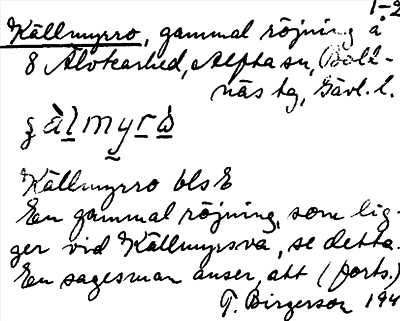 1-2
Källmyrro, gammal röjning å
8 Älvkarhed, Alfta sn, Boll-
näs tg, Gävl. l.
Källmyrro bls E
En gammal röjning, som lig-
ger vid Källmyrsva, se detta.
En sagesman anser, att (forts.)
T. Birgerson 194